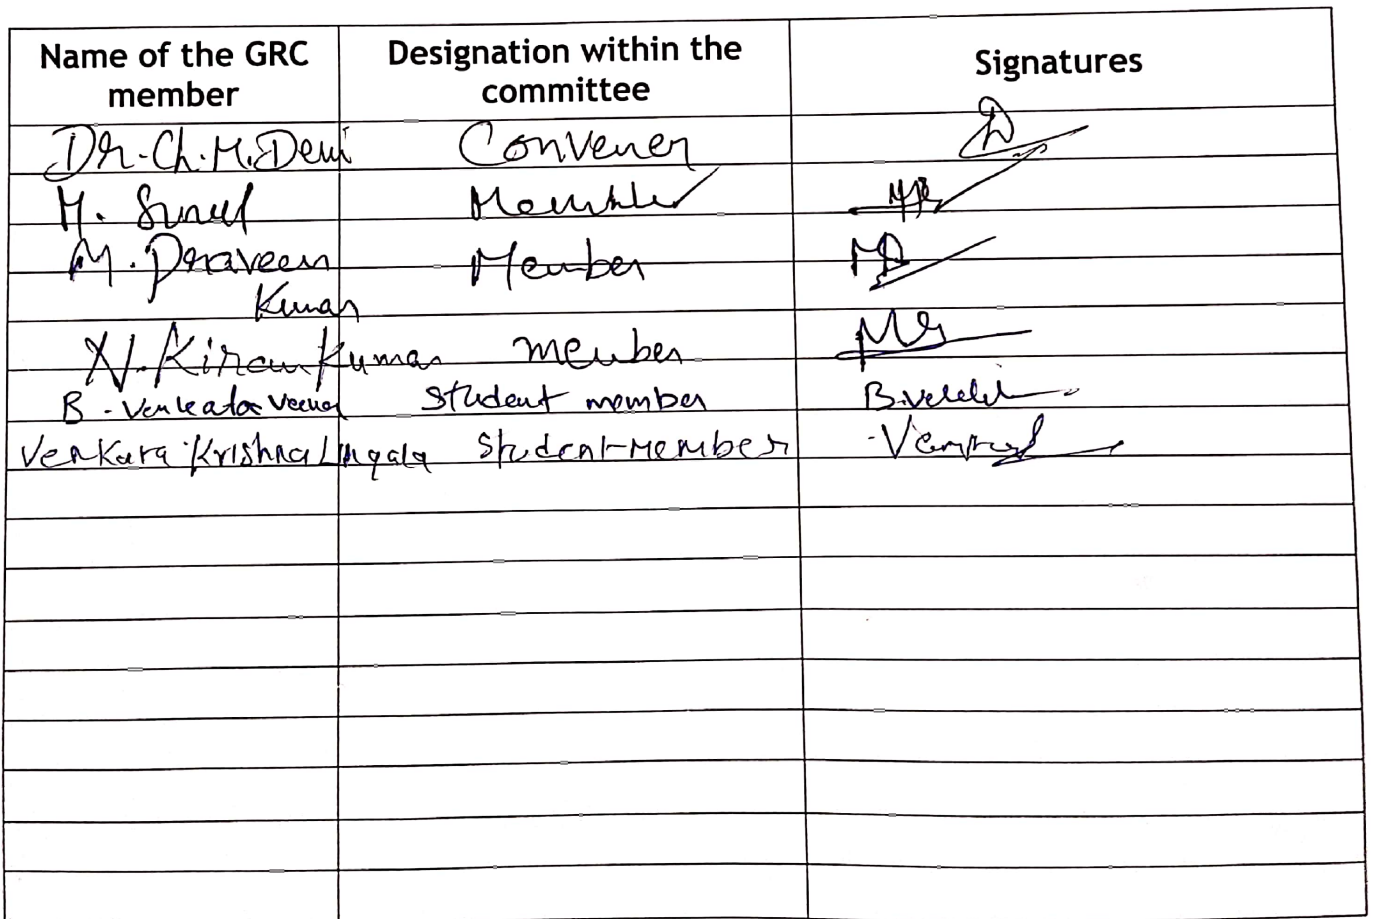 Name of the GRC member Designation within the committee Signatures
Dr. Ch. M. Devi Convener
M. Sunil Member
M. Praveen Kumar Member
N. Kiran Kumar member
B. Venkata student member
Venkata Krishna Lingala Student-Member